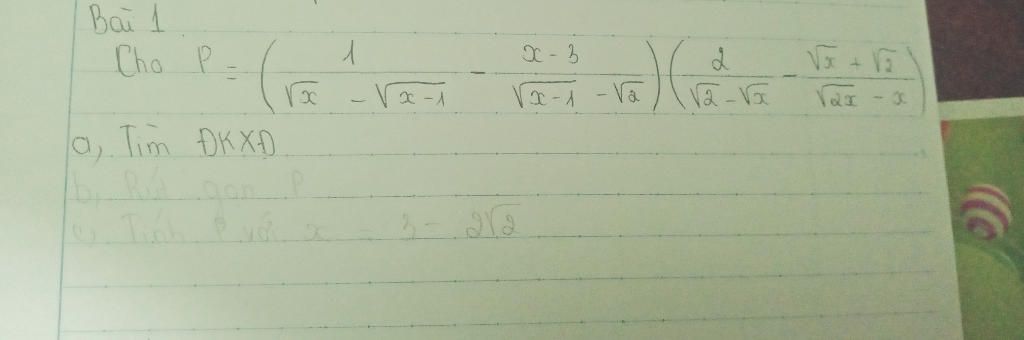 Bài 1
Cho P = ( 1 / (√x - √(x-1)) - (x-3) / (√(x-1) - √2) ) ( 2 / (√2 - √x) - (√x + √2) / (√(2x) - x) )
a, Tìm ĐKXĐ
b, Rút gọn P
c, Tính P với x = 3 - 2√2